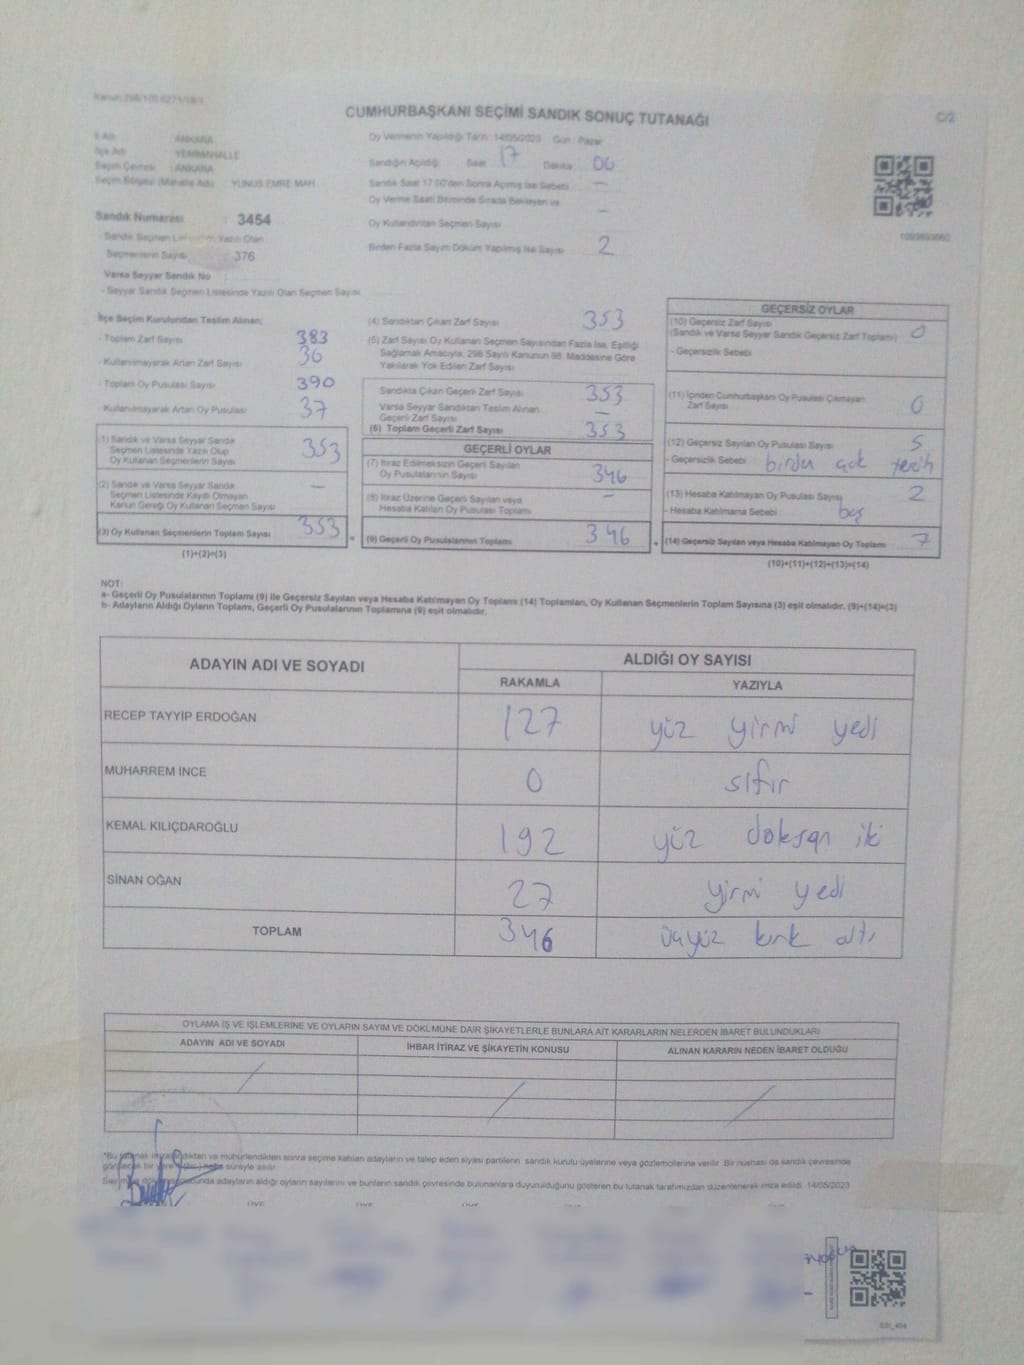 CUMHURBAŞKANI SEÇİMİ SANDIK SONUÇ TUTANAĞI
C/2
İl Adı : ANKARA
İlçe Adı : YENİMAHALLE
Seçim Çevresi : ANKARA
Seçim Bölgesi (Mahalle Adı) : YUNUS EMRE MAH.
Sandık Numarası : 3454
- Sandık Seçmen Yazılı Olan
Seçmenlerin Sayısı 376
Varsa Seyyar Sandık No :
- Seyyar Sandık Seçmen Listesinde Yazılı Olan Seçmen Sayısı
Oy Vermenin Yapıldığı Tarih: 14/05/2023 Gün: Pazar
Sandığın Açıldığı Saat 17 Dakika 00
Sandık Saat 17.00'den Sonra Açılmış İse Sebebi —
Oy Verme Saati Bitiminde Sırada Bekleyen ve
Oy Kullandırılan Seçmen Sayısı —
Birden Fazla Sayım Döküm Yapılmış İse Sayısı 2
İlçe Seçim Kurulundan Teslim Alınan:
- Toplam Zarf Sayısı 383
- Kullanılmayarak Artan Zarf Sayısı 30
- Toplam Oy Pusulası Sayısı 390
- Kullanılmayarak Artan Oy Pusulası 37
(1) Sandık ve Varsa Seyyar Sandık
Seçmen Listesinde Yazılı Olup
Oy Kullanan Seçmenlerin Sayısı 353
(2) Sandık ve Varsa Seyyar Sandık
Seçmen Listesinde Kayıtlı Olmayan
Kanun Gereği Oy Kullanan Seçmen Sayısı —
(3) Oy Kullanan Seçmenlerin Toplam Sayısı 353
(1)+(2)=(3)
(4) Sandıktan Çıkan Zarf Sayısı 353
(5) Zarf Sayısı Oy Kullanan Seçmen Sayısından Fazla İse, Eşitliği
Sağlamak Amacıyla, 298 Sayılı Kanunun 98. Maddesine Göre
Yakılarak Yok Edilen Zarf Sayısı
Sandıkta Çıkan Geçerli Zarf Sayısı 353
Varsa Seyyar Sandıktan Teslim Alınan
Geçerli Zarf Sayısı —
(6) Toplam Geçerli Zarf Sayısı 353
GEÇERLİ OYLAR
(7) İtiraz Edilmeksizin Geçerli Sayılan
Oy Pusulalarının Sayısı 346
(8) İtiraz Üzerine Geçerli Sayılan veya
Hesaba Katılan Oy Pusulası Toplamı —
= (9) Geçerli Oy Pusulalarının Toplamı 346
GEÇERSİZ OYLAR
(10) Geçersiz Zarf Sayısı
(Sandık ve Varsa Seyyar Sandık Geçersiz Zarf Toplamı) 0
- Geçersizlik Sebebi
(11) İçinden Cumhurbaşkanı Oy Pusulası Çıkmayan
Zarf Sayısı 0
(12) Geçersiz Sayılan Oy Pusulası Sayısı 5
- Geçersizlik Sebebi birden çok tercih
(13) Hesaba Katılmayan Oy Pusulası Sayısı 2
- Hesaba Katılmama Sebebi : boş
+ (14) Geçersiz Sayılan veya Hesaba Katılmayan Oy Toplamı 7
(10)+(11)+(12)+(13)=(14)
NOT:
a- Geçerli Oy Pusulalarının Toplamı (9) ile Geçersiz Sayılan veya Hesaba Katılmayan Oy Toplamı (14) Toplamları, Oy Kullanan Seçmenlerin Toplam Sayısına (3) eşit olmalıdır. (9)+(14)=(3)
b- Adayların Aldığı Oyların Toplamı, Geçerli Oy Pusulalarının Toplamına (9) eşit olmalıdır.
ADAYIN ADI VE SOYADI ALDIĞI OY SAYISI
RAKAMLA YAZIYLA
RECEP TAYYİP ERDOĞAN 127 yüz yirmi yedi
MUHARREM İNCE 0 sıfır
KEMAL KILIÇDAROĞLU 192 yüz doksan iki
SİNAN OĞAN 27 yirmi yedi
TOPLAM 346 üçyüz kırk altı
OYLAMA İŞ VE İŞLEMLERİNE VE OYLARIN SAYIM VE DÖKÜMÜNE DAİR ŞİKAYETLERLE BUNLARA AİT KARARLARIN NELERDEN İBARET BULUNDUKLARI
ADAYIN ADI VE SOYADI İHBAR İTİRAZ VE ŞİKAYETİN KONUSU ALINAN KARARIN NEDEN İBARET OLDUĞU
*Bu tutanak imzalandıktan ve mühürlendikten sonra seçime katılan adayların ve talep eden siyasi partilerin sandık kurulu üyelerine veya gözlemcilerine verilir. Bir nüshası da sandık çevresinde
bir süreyle asılır.
adayların aldığı oyların sayılarını ve bunların sandık çevresinde bulunanlara duyurulduğunu gösteren bu tutanak tarafımızdan düzenlenerek imza edildi. 14/05/2023